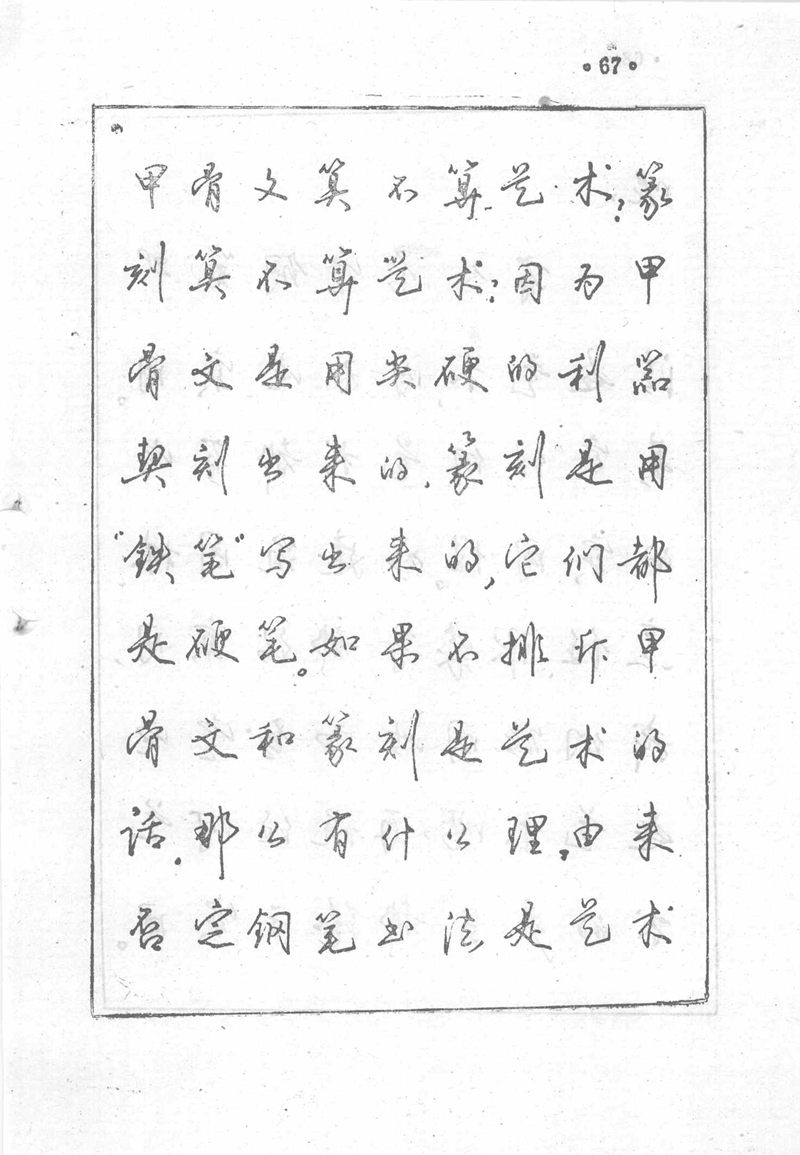 •67•
甲骨文算不算艺术？篆
刻算不算艺术？因为甲
骨文是用尖硬的利器
契刻出来的，篆刻是用
“铁笔”写出来的，它们都
是硬笔。如果不排斥甲
骨文和篆刻是艺术的
话，那么有什么理由来
否定钢笔书法是艺术